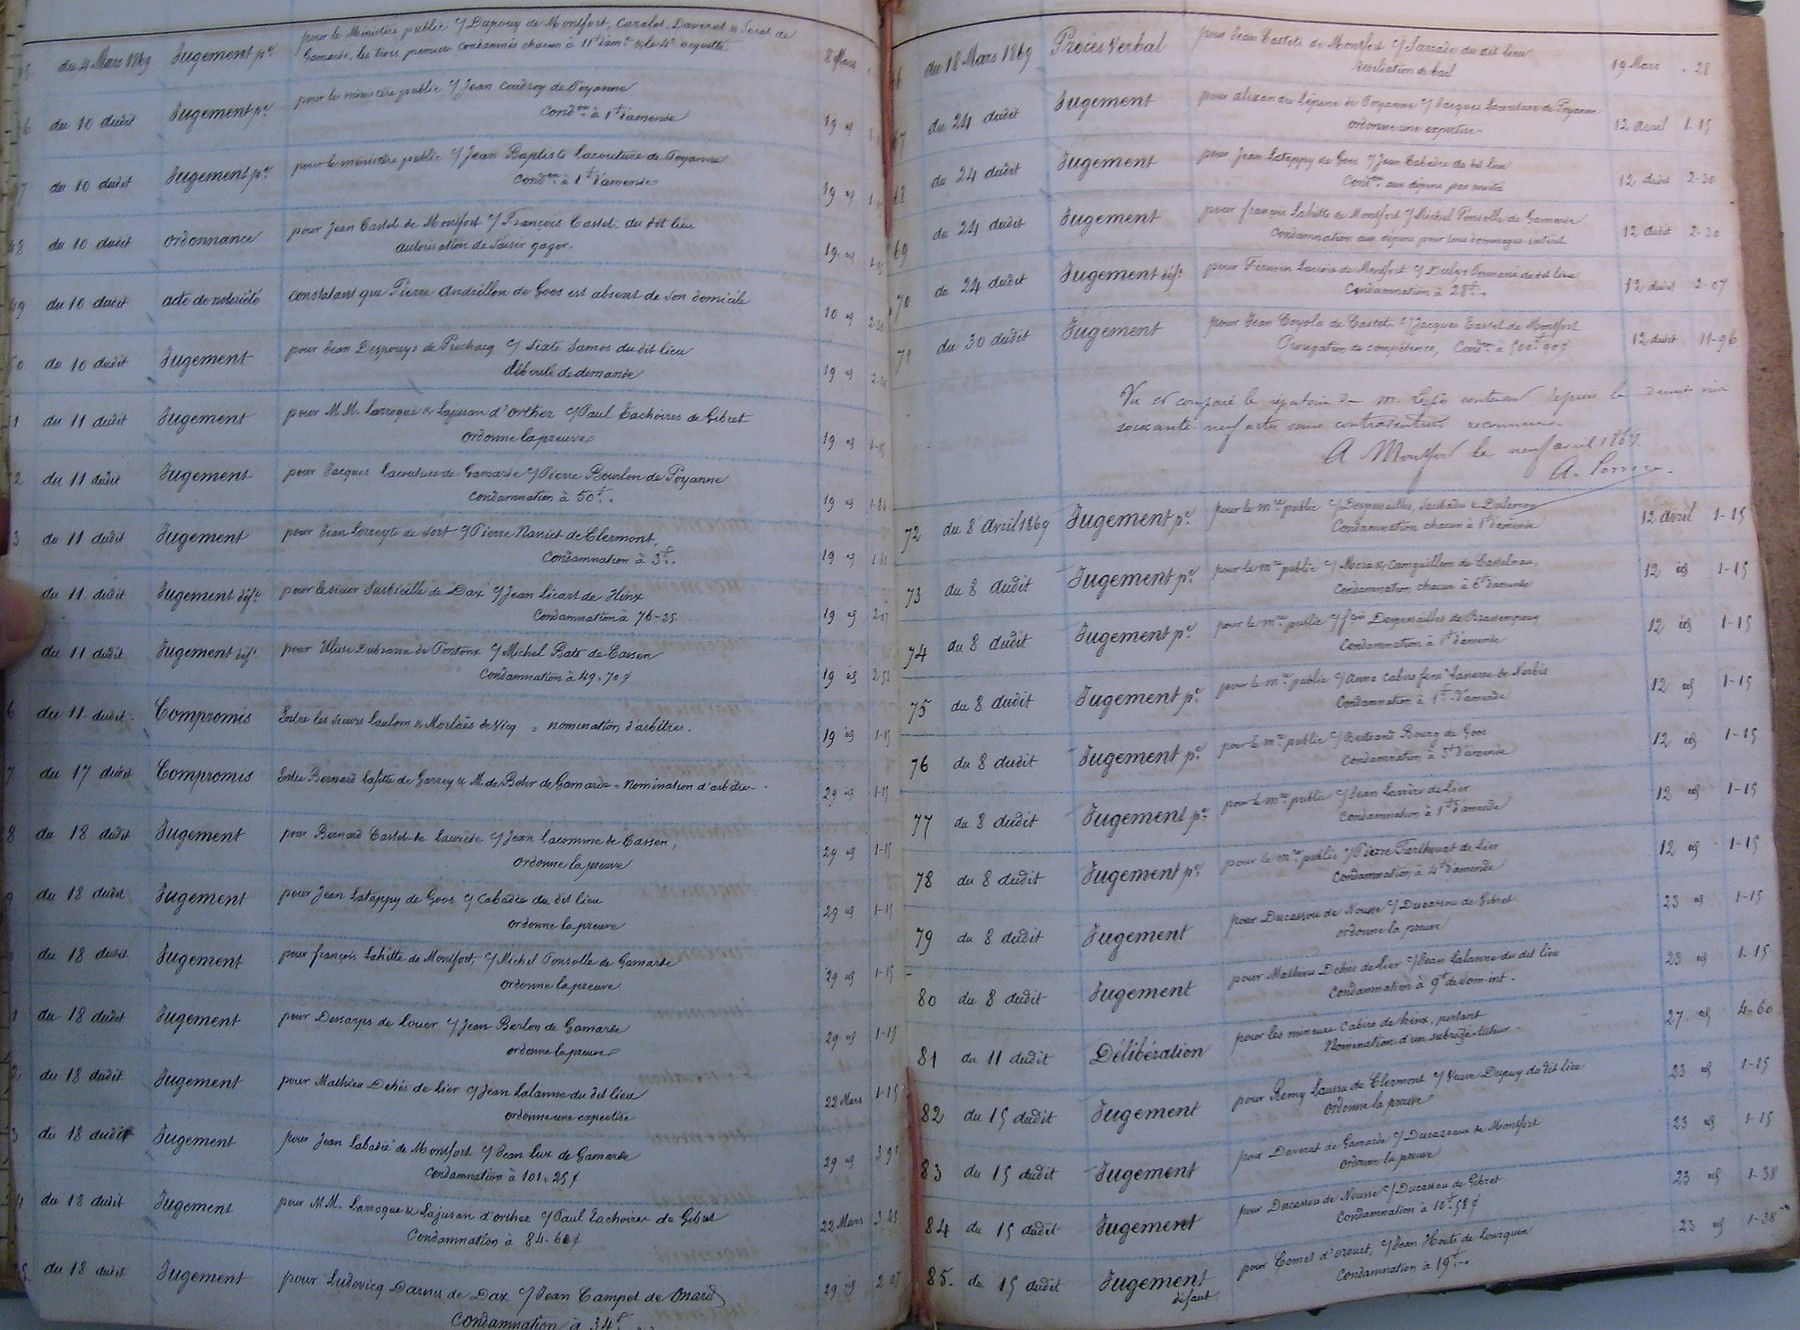 du 4 Mars 1869 Jugement pce pour le Ministère public c/ Dupouy de Montfort, Cazalot, Daverat & de
Gamarde, les trois premiers condamnés chacun à 11f d'am. & le 4e acquitté 8 Mars
6 du 10 dudit Jugement pce pour le ministère public c/ Jean Coudroy de Poyanne
Condon à 1f d'amende 19 id
7 du 10 dudit Jugement pce pour le ministère public c/ Jean Baptiste Lacouture de Poyanne
Condon à 1f d'amende 19 id
48 du 10 dudit ordonnance pour Jean Castet de Montfort c/ François Castet du dit lieu
autorisation de saisir gager. 19 id
49 du 10 dudit acte de notoriété constatant que Pierre Andrillon de Goos est absent de son domicile 10 id
0 du 10 dudit Jugement pour Jean Despouys de Préchacq c/ Sixte Lamos du dit lieu
débouté de demande 19 id
1 du 11 dudit Jugement pour M.M. Larroque & Lajusan d'Orthez c/ Paul Tachoires de Gibret
ordonne la preuve 19 id 1-15
2 du 11 dudit Jugement pour Jacques Lacouture de Gamarde c/ Pierre Bourlon de Poyanne
Condamnation à 50f. 19 id 1-84
3 du 11 dudit Jugement pour Jean de Sort c/ Pierre Narriet de Clermont,
Condamnation à 3f. 19 id
du 11 dudit Jugement déft pour le sieur Susbielle de Dax c/ Jean Licart de Hinx
Condamnation à 76-35 19 id
du 11 dudit Jugement déft pour Ulisse Dubranna de Pontonx c/ Michel Bats de Cassen
Condamnation à 49-70c 19 id
6 du 11 dudit Compromis Entre les sieurs Laulom & Morlaës de Vicq = nomination d'arbitres. 19 id 1-15
7 du 17 dudit Compromis Entre Bernard Lafitte de Garrey & M. de Behr de Gamarde = nomination d'arbitres. 29 id 1-15
8 du 18 dudit Jugement pour Bernard Castet de Laurède c/ Jean Lacomme de Cassen,
ordonne la preuve 29 id 1-15
9 du 18 dudit Jugement pour Jean Lateppy de Goos c/ Cabadie du dit lieu
ordonne la preuve 29 id 1-15
du 18 dudit Jugement pour françois Lahitte de Montfort, c/ Michel Ponsolle de Gamarde
ordonne la preuve 29 id 1-15
1 du 18 dudit Jugement pour Dessarps de Louer c/ Jean Berlon de Gamarde
ordonne la preuve 29 id 1-15
2 du 18 dudit Jugement pour Mathieu Dehès de Lier c/ Jean Lalanne du dit lieu
ordonne une expertise 22 Mars 1-15
3 du 18 dudit Jugement pour Jean Labadie de Montfort c/ Jean Lux de Gamarde
Condamnation à 101-25c 29 id
4 du 18 dudit Jugement pour M.M. Larroque & Lajusan d'orthez c/ Paul Tachoires de Gibret
Condamnation à 84-60c 22 Mars 3-45
5 du 18 dudit Jugement pour Ludovicq Darnu de Dax c/ Jean Campet de Onard
Condamnation à 34f 29 id 2-07
66 du 18 Mars 1869 Procès Verbal pour Jean Castets de Montfort c/ Sarrade du dit lieu
Résiliation de bail 19 Mars 28
67 du 24 dudit Jugement pour alexandre Lépine de Poyanne c/ Jacques Lacouture de Poyanne
ordonne une expertise 12 avril 1-15
68 du 24 dudit Jugement pour Jean Lateppy de Goos c/ Jean Cabadie du dit lieu
Condon aux dépens par moitié 12 dudit 2-30
69 du 24 dudit Jugement pour françois Lahitte de Montfort c/ Michel Ponsolle de Gamarde
Condamnation aux dépens pour tous dommages-intérêts 12 dudit 2-30
70 du 24 dudit Jugement déft pour Firmin Lacroix de Montfort c/ du dit lieu
Condamnation à 28f. 12 dudit 2-07
71 du 30 dudit Jugement pour Jean Coyola de Castets c/ Jacques Castet de Montfort
Prorogation de compétence, Condon à 500f 90c 12 dudit 11-96
Vu et comparé le répertoire de m. contenant depuis le dernier visa
soixante-neuf actes sans contravention reconnue.
A Montfort le neuf avril 1869.
72 du 8 Avril 1869 Jugement pce pour le mre public c/ Despouailles, Laubadie & Dulamon
Condamnation chacun à 1f d'amende 12 avril 1-15
73 du 8 dudit Jugement pce pour le mre public c/ & Camguilhem de Castelnau,
Condamnation chacun à 6f d'amende 12 id 1-15
74 du 8 dudit Jugement pce pour le mre public c/ fçois Despouailles de Brassempouy
Condamnation à 1f d'amende 12 id 1-15
75 du 8 dudit Jugement pce pour le mre public c/ Anne Cabiro feme Lanusse de Nerbis
Condamnation à 1f d'amende 12 id 1-15
76 du 8 dudit Jugement pce pour le mre public c/ Bertrand Bourg de Goos
Condamnation à 5f d'amende 12 id 1-15
77 du 8 dudit Jugement pce pour le mre public c/ Jean Lavire de Lier
Condamnation à 1f d'amende 12 id 1-15
78 du 8 dudit Jugement pce pour le mre public c/ Pierre Farthouat de Lier
Condamnation à 4f d'amende 12 id 1-15
79 du 8 dudit Jugement pour Ducassou de Nousse c/ Ducassou de Gibret
ordonne la preuve 23 id 1-15
80 du 8 dudit Jugement pour Mathieu Dehès de Lier c/ Jean Lalanne du dit lieu
Condamnation à 9f de dom-int. 23 id 1-15
81 du 11 dudit Délibération pour les mineurs Cabiro de hinx, portant
Nomination d'un subrogé-tuteur 27 id 4-60
82 du 15 dudit Jugement pour Remy Laussu de Clermont c/ Veuve Dupuy du dit lieu
Ordonne la preuve 23 id 1-15
83 du 15 dudit Jugement pour Daverat de Gamarde c/ Ducazeaux de Montfort
Ordonne la preuve 23 id 1-15
84 du 15 dudit Jugement pour Ducassou de Nousse c/ Ducassou de Gibret
Condamnation à 10f 58c 23 id 1-38
85. du 15 dudit Jugement défaut. pour Comet d'Onard, c/ Jean Houts de Lourquen
Condamnation à 19f. 23 id 1-38